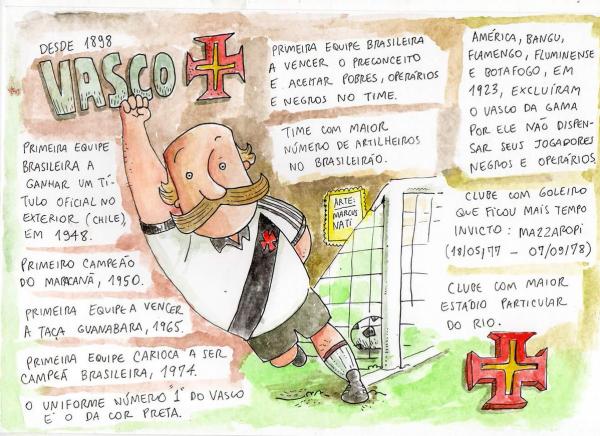 DESDE 1898
VASCO
PRIMEIRA EQUIPE
BRASILEIRA A
GANHAR UM TÍ-
TULO OFICIAL NO
EXTERIOR (CHILE),
EM 1948.
PRIMEIRO CAMPEÃO
DO MARACANÃ, 1950.
PRIMEIRA EQUIPE A VENCER
A TAÇA GUANABARA, 1965.
PRIMEIRA EQUIPE CARIOCA A SER
CAMPEÃ BRASILEIRA, 1974.
O UNIFORME NÚMERO "1" DO VASCO
É O DA COR PRETA.
PRIMEIRA EQUIPE BRASILEIRA
A VENCER O PRECONCEITO
E ACEITAR POBRES, OPERÁRIOS
E NEGROS NO TIME.
TIME COM MAIOR
NÚMERO DE ARTILHEIROS
NO BRASILEIRÃO.
ARTE:
MARCUS
NATI
AMÉRICA, BANGU,
FLAMENGO, FLUMINENSE
E BOTAFOGO, EM
1923, EXCLUÍRAM
O VASCO DA GAMA
POR ELE NÃO DISPEN-
SAR SEUS JOGADORES
NEGROS E OPERÁRIOS.
CLUBE COM GOLEIRO
QUE FICOU MAIS TEMPO
INVICTO: MAZZAROPI
(18/05/77 - 07/09/78)
CLUBE COM MAIOR
ESTÁDIO PARTICULAR
DO RIO.